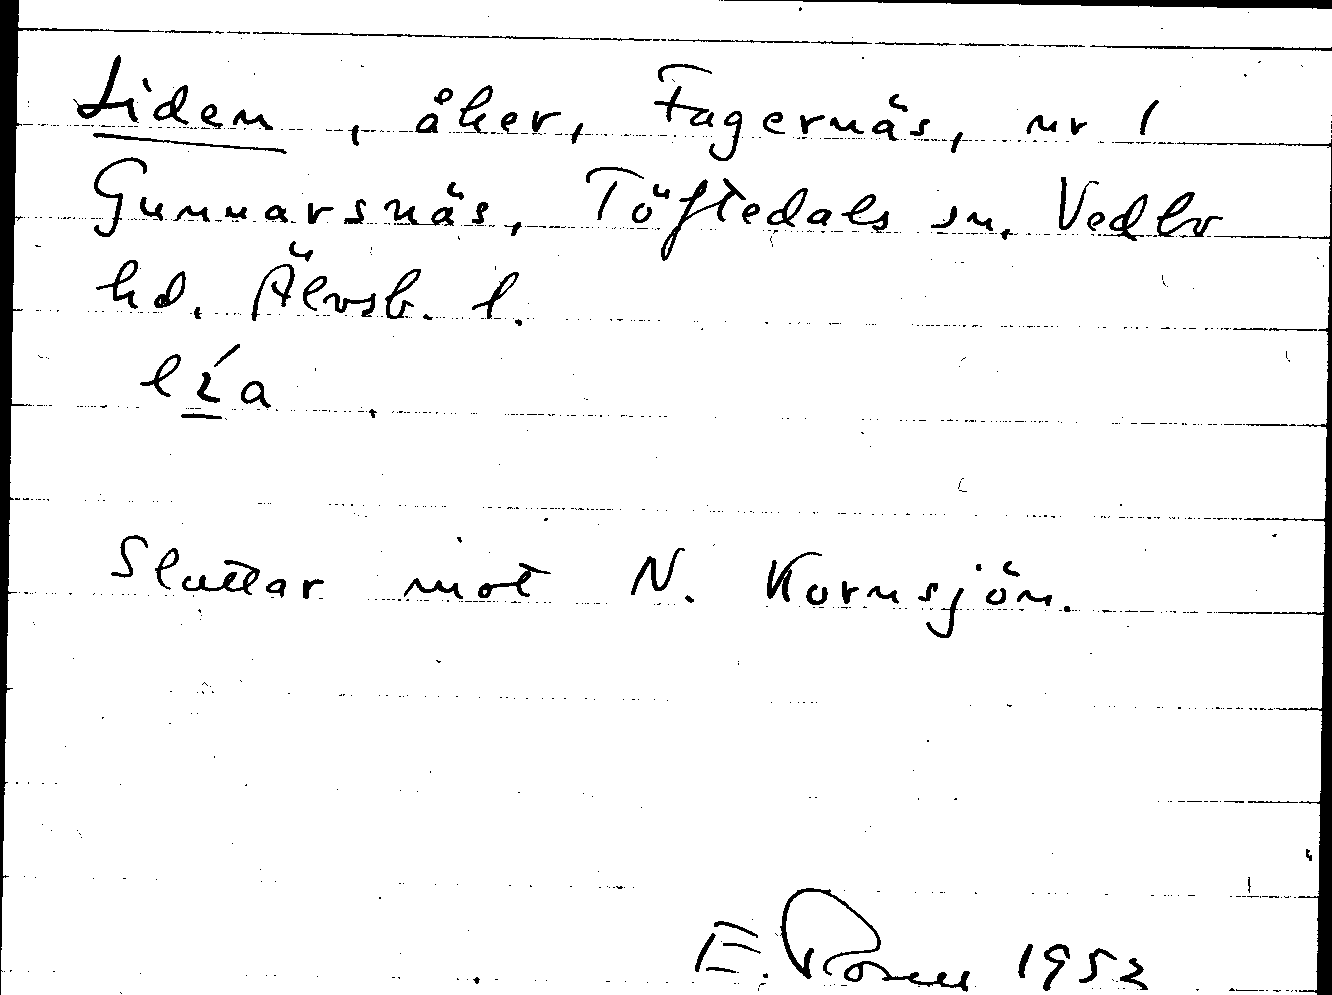 Liden, åker, Fagernäs, nr 1
Gunnarsnäs, Töftedals sn. Vedbo
hd. Älvsb. l.
Sluttar mot N. Kornsjön.
E. Rosell 1953